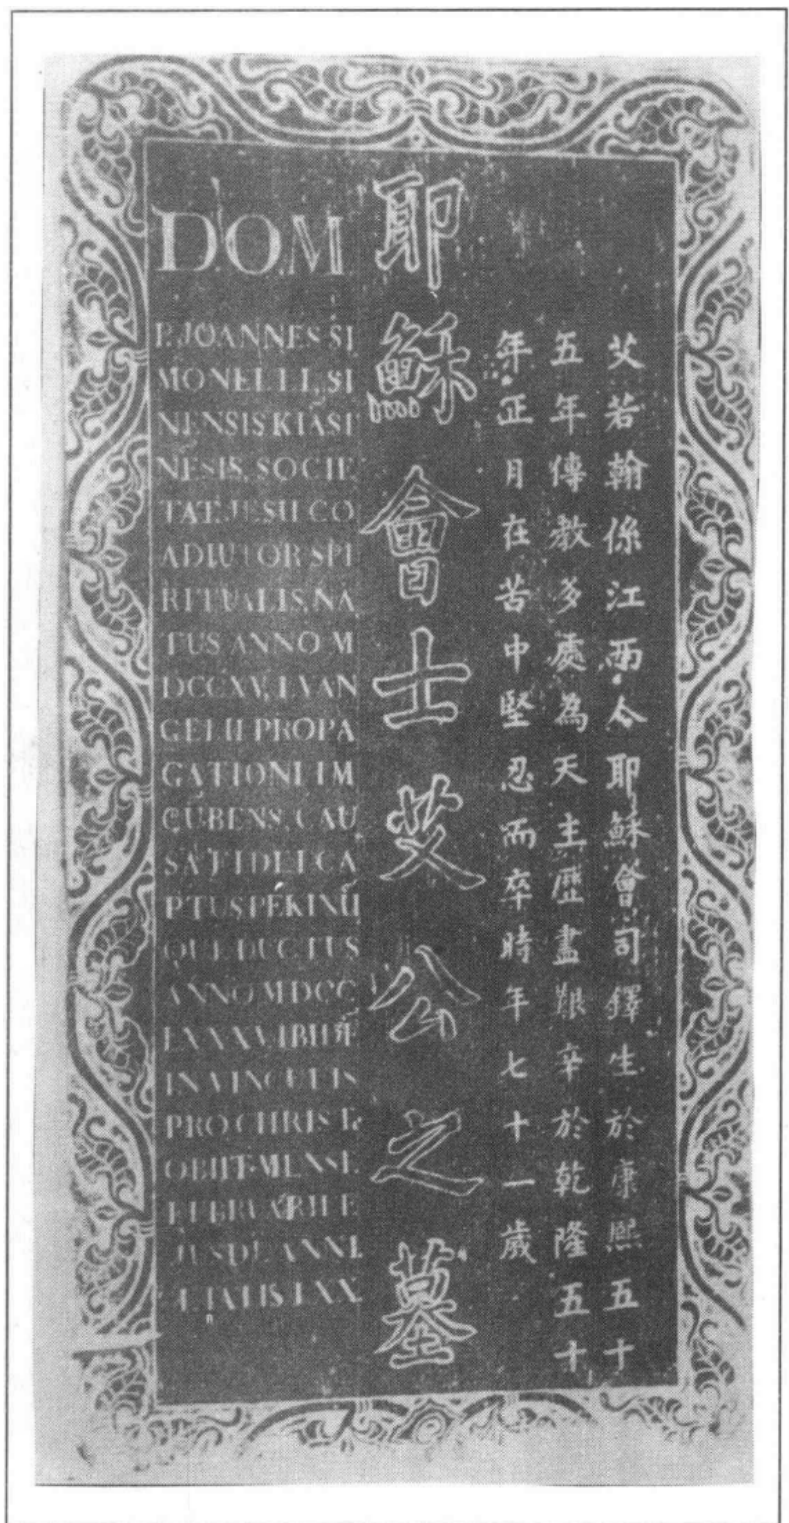 D.O.M
P. JOANNES SI
MONELLI, SI
NENSIS KIASI
NESIS, SOCIE
TAT. JESU CO
ADIUTOR SPI
RITUALIS, NA
TUS ANNO M
DCCXV, EVAN
GELII PROPA
GATIONI IM
CUBENS, CAU
SA FIDEI CA
PTUS PEKINU
QUE DUCTUS
ANNO MDCC
LXXXVI IBIDE
IN VINCULIS
PRO CHRISTO
OBIIT MENSE
FEBRUARII E
JUSDE ANNI
ÆTATIS LXX
耶穌會士艾公之墓
艾若翰係江西人耶穌會司鐸生於康熙五十
五年傳教多處為天主歷盡艱辛於乾隆五十
年正月在苦中堅忍而卒時年七十一歲